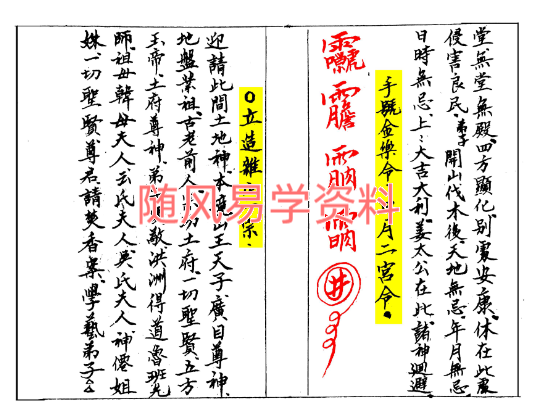 堂無堂無殿四方顯化別處安康休在此處
侵害良民弟子開山伐木後天地無忌年月無忌
日時無忌上上大吉大利姜太公在此諸神迴避
手號金樂令 月二宮令
井
〇立造雜 宗
迎請此間土地神本境山王天子廣目尊神
地盤業祖古老前人 土府一切聖賢五方
玉帝土府尊神弟 敬洪洲得道魯班先
師祖母韓母夫人玄氏夫人吳氏夫人神僊姐
妹一切聖賢尊君請焚香案學藝弟子
随风易学资料